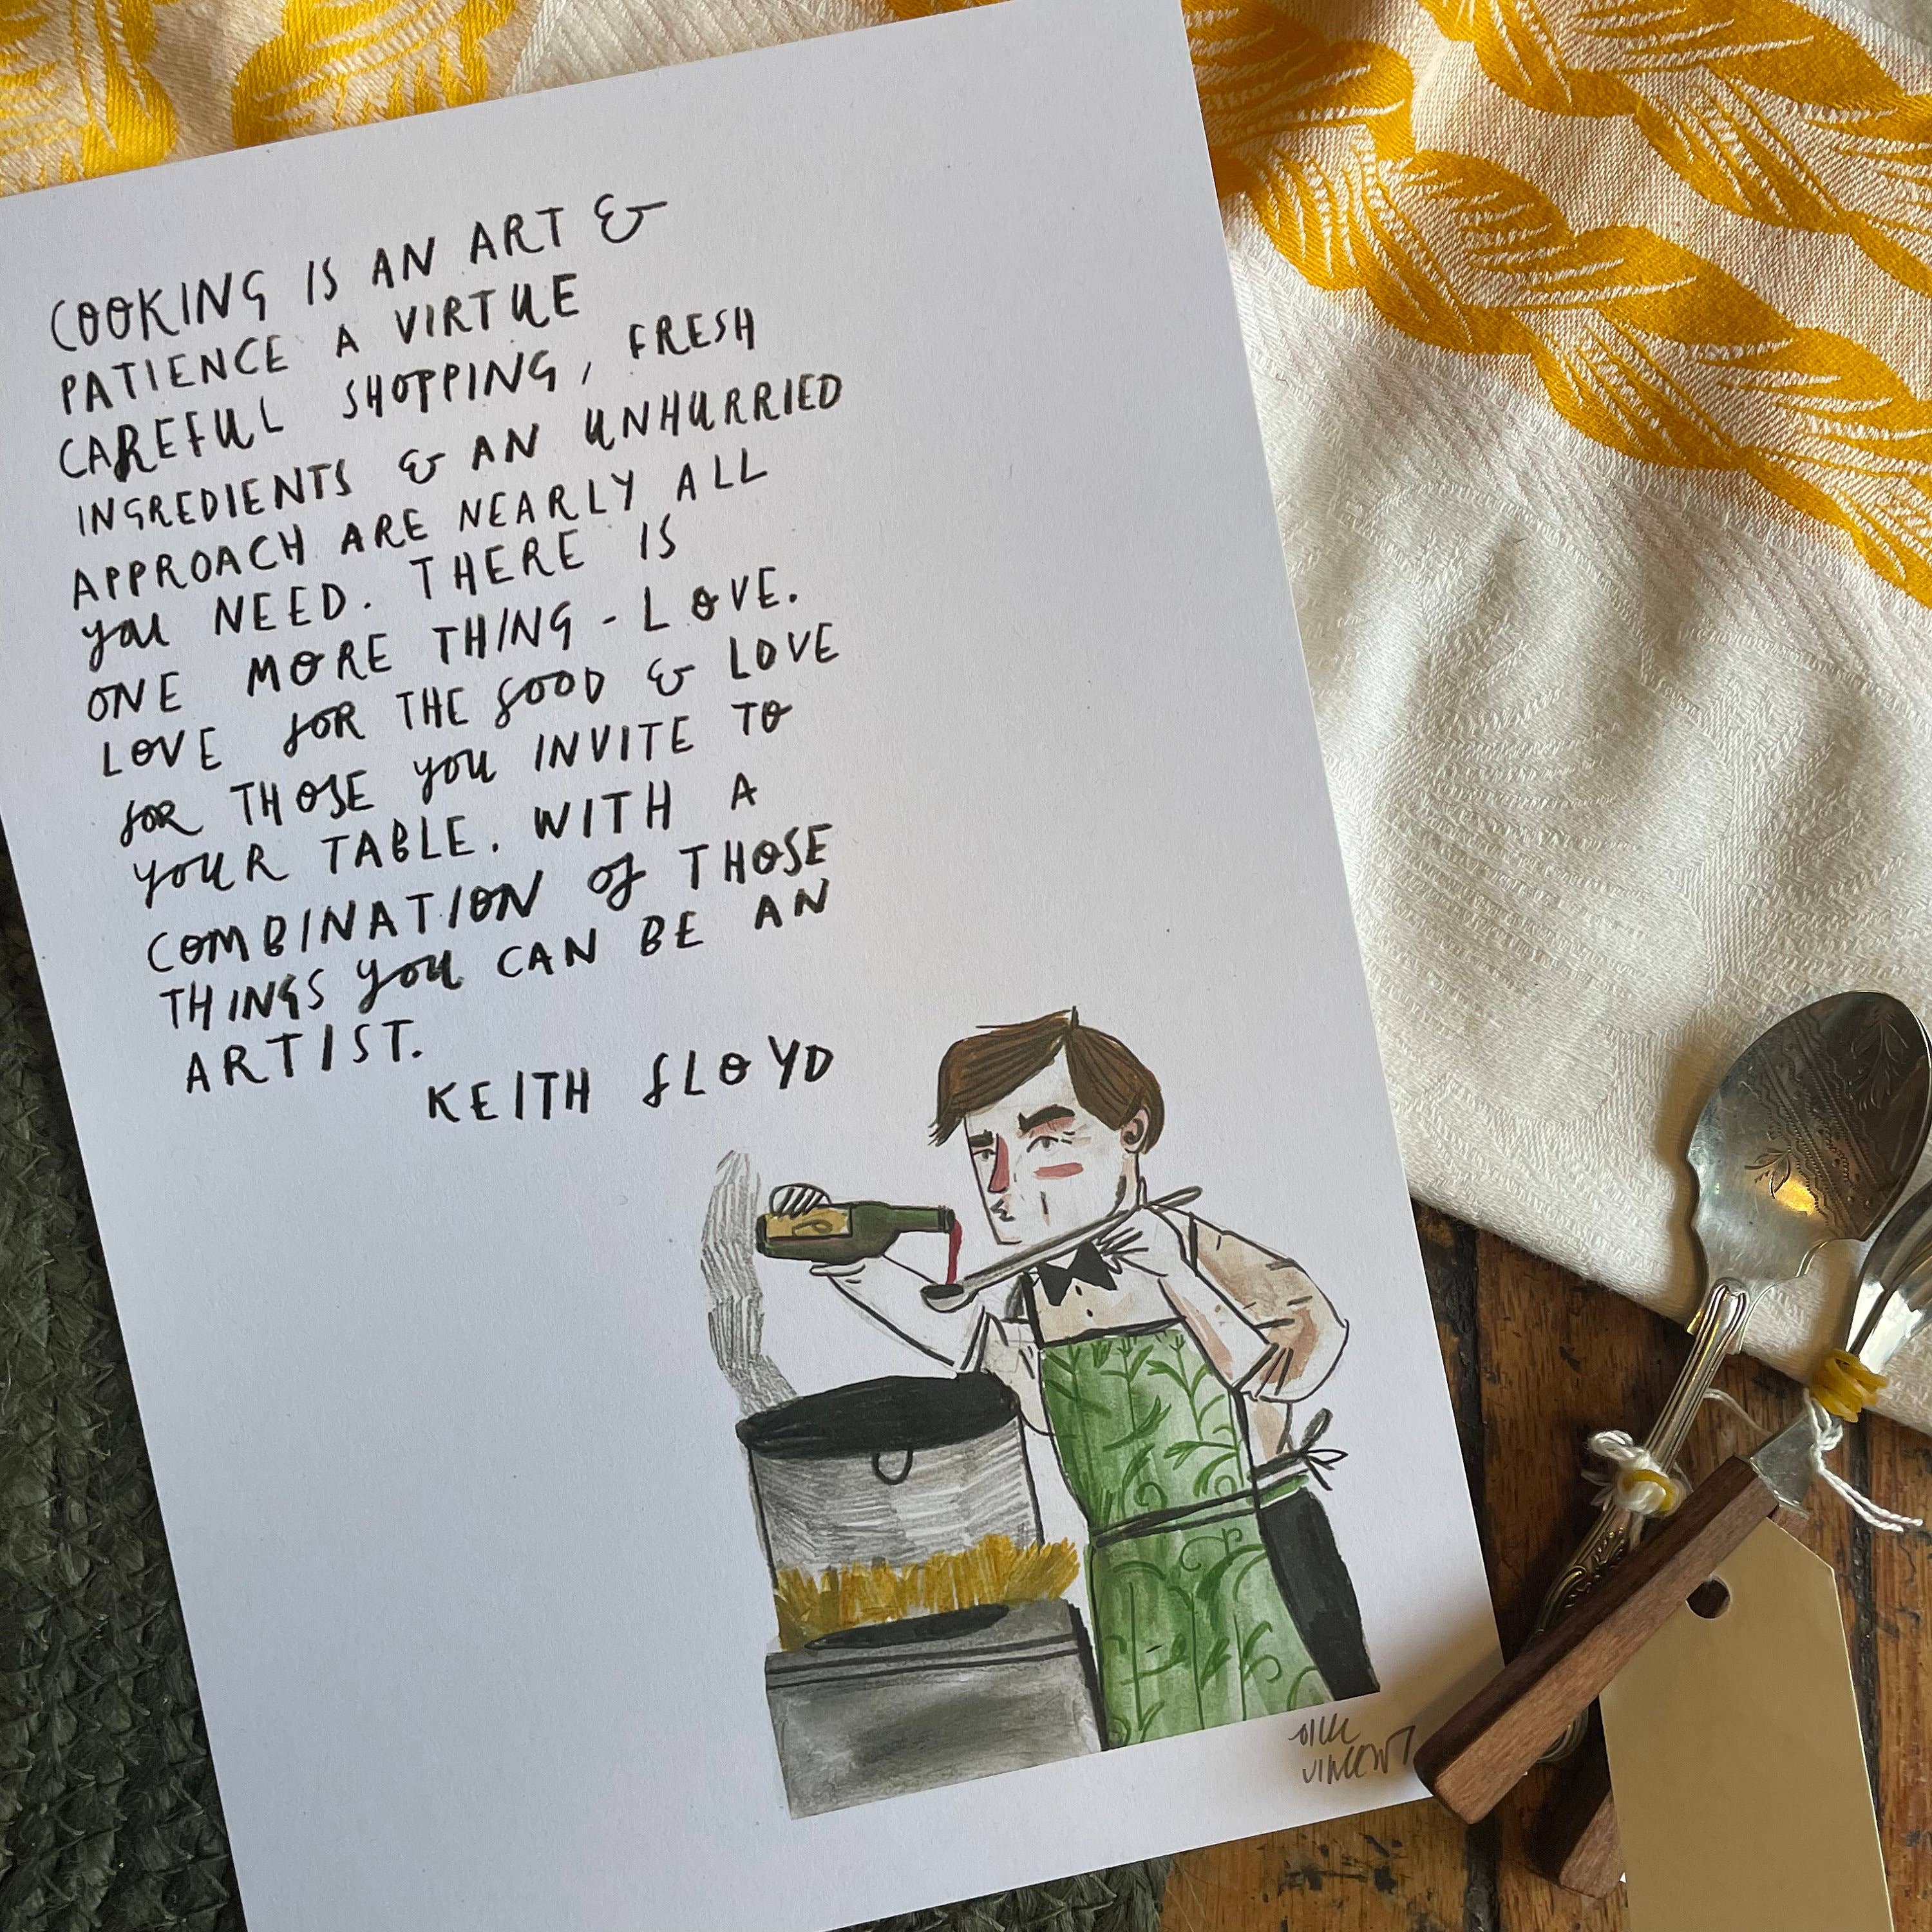 COOKING IS AN ART &
PATIENCE A VIRTUE
CAREFUL SHOPPING, FRESH
INGREDIENTS & AN UNHURRIED
APPROACH ARE NEARLY ALL
you NEED. THERE IS
ONE MORE THING - LOVE.
LOVE fOR THE fOOD & LOVE
fOR THOSE you INVITE TO
youR TABLE. WITH A
COMBINATION Of THOSE
THINGS you CAN BE AN
ARTIST.
KEITH fLOYD
VINCENT